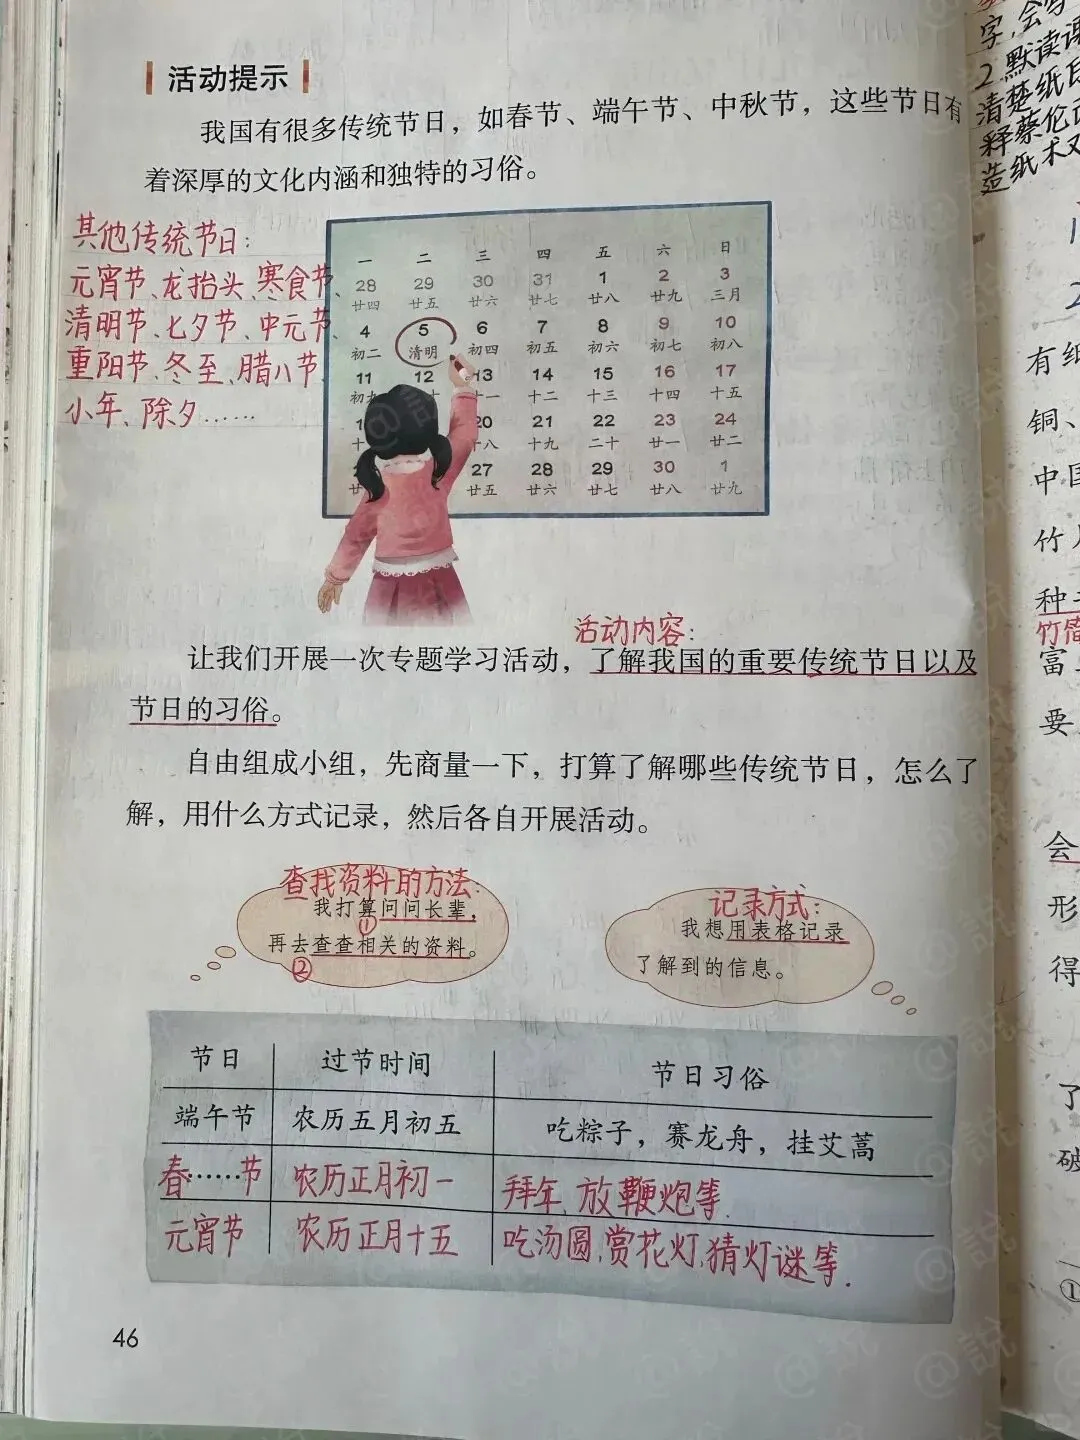 活动提示
我国有很多传统节日，如春节、端午节、中秋节，这些节日有
着深厚的文化内涵和独特的习俗。
其他传统节日：
元宵节、龙抬头、寒食节、
清明节、七夕节、中元节、
重阳节、冬至、腊八节、
小年、除夕……
一 二 三 四 五 六 日
28 29 30 31 1 2 3
廿四 廿五 廿六 廿七 廿八 廿九 三月
4 5 6 7 8 9 10
初二 清明 初四 初五 初六 初七 初八
11 12 13 14 15 16 17
初九 十 十一 十二 十三 十四 十五
20 21 22 23 24
十八 十九 二十 廿一 廿二
27 28 29 30 1
廿五 廿六 廿七 廿八 廿九
活动内容：
让我们开展一次专题学习活动，了解我国的重要传统节日以及
节日的习俗。
自由组成小组，先商量一下，打算了解哪些传统节日，怎么了
解，用什么方式记录，然后各自开展活动。
查找资料的方法：
我打算问问长辈，
①
再去查查相关的资料。
②
记录方式：
我想用表格记录
了解到的信息。
节日 过节时间 节日习俗
端午节 农历五月初五 吃粽子，赛龙舟，挂艾蒿
春……节 农历正月初一 拜年、放鞭炮等.
元宵节 农历正月十五 吃汤圆、赏花灯、猜灯谜等.
46
字，会写
2.默读课
清楚纸
释蔡伦
造纸术
有细
铜、
中国
竹片
种
竹简
富
要
会
形
得
了
破
①
@説